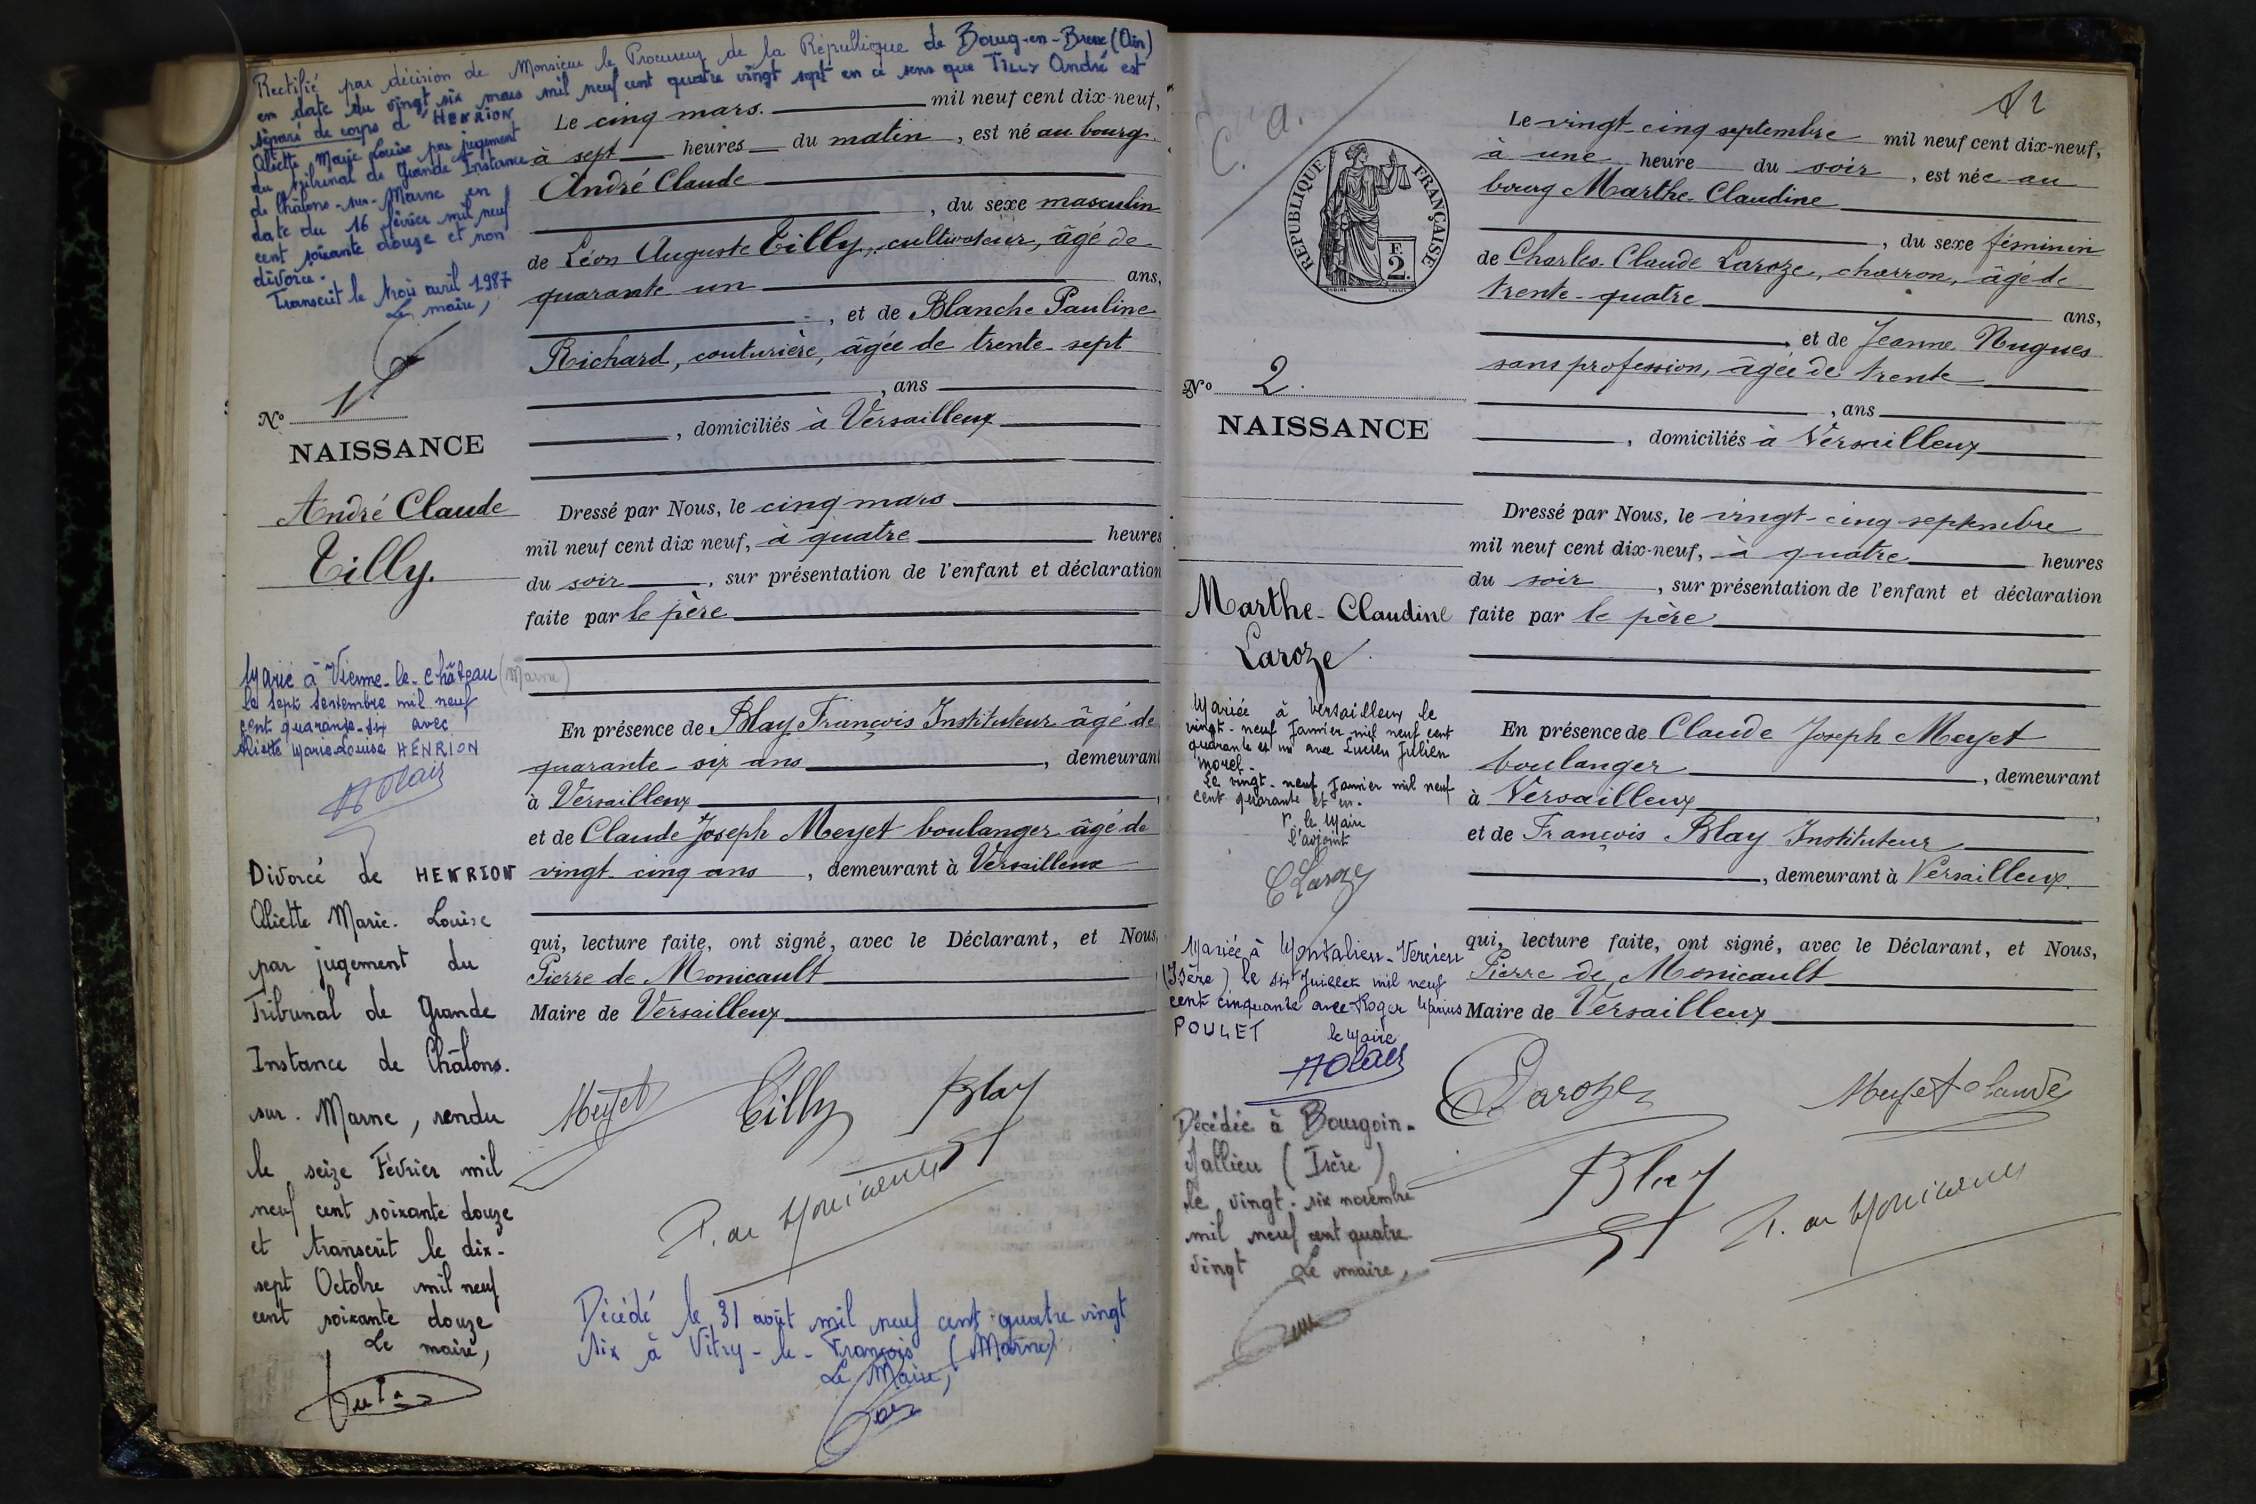 Rectifié par décision de Monsieur le Procureur de la République de Bourg-en-Bresse (Ain)
en date du vingt six mars mil neuf cent quatre vingt sept en ce sens que TILLY André est
séparé de corps d'HENRION
Aliette Marie Louise par jugement
du tribunal de Grande Instance
de Châlons-sur-Marne en
date du 16 février mil neuf
cent soixante douze et non
divorcé.
Transcrit le trois avril 1987
Le maire,
No 1
NAISSANCE
André Claude
Tilly.
Marié à Vienne-le-château (Marne)
le sept septembre mil neuf
cent quarante-six avec
Aliette Marie Louise HENRION
Divorcé de HENRION
Aliette Marie-Louise
par jugement du
Tribunal de Grande
Instance de Châlons-
sur-Marne, rendu
le seize Février mil
neuf cent soixante douze
et transcrit le dix-
sept Octobre mil neuf
cent soixante douze
Le maire,
Le cinq mars. mil neuf cent dix-neuf,
à sept heures du matin, est né au bourg
André Claude
, du sexe masculin
de Léon Auguste Tilly, cultivateur, âgé de
quarante un ans,
, et de Blanche Pauline
Richard, couturière, âgée de trente-sept
, ans
, domiciliés à Versailleux
Dressé par Nous, le cinq mars
mil neuf cent dix neuf, à quatre heures
du soir, sur présentation de l'enfant et déclaration
faite par le père
En présence de Blay François Instituteur âgé de
quarante six ans, demeurant
à Versailleux,
et de Claude Joseph Meyet boulanger âgé de
vingt cinq ans, demeurant à Versailleux
qui, lecture faite, ont signé, avec le Déclarant, et Nous,
Pierre de Monicault
Maire de Versailleux
Meyet Tilly Blay
P. de Monicault
Décédé le 31 août mil neuf cent quatre vingt
six à Vitry-le-François (Marne)
Le Maire,
C. a.
RÉPUBLIQUE FRANÇAISE
F.
2.
No 2.
NAISSANCE
Marthe-Claudine
Laroze
Mariée à Versailleux le
vingt-neuf Janvier mil neuf cent
quarante et un avec Lucien Julien
Morel-
Le vingt-neuf Janvier mil neuf
cent quarante et un.
P. le Maire
l'adjoint
C Laroze
Mariée à Montalieu-Vercieu
(Isère) le six Juillet mil neuf
cent cinquante avec Roger Marius
POULET le Maire
Décédée à Bourgoin-
Jallieu (Isère)
le vingt-six novembre
mil neuf cent quatre
vingt Le maire,
2
Le vingt-cinq septembre mil neuf cent dix-neuf,
à une heure du soir, est née au
bourg Marthe-Claudine
, du sexe féminin
de Charles-Claude Laroze, charron, âgé de
trente-quatre ans,
, et de Jeanne Nugues
sans profession, âgée de trente
, ans
, domiciliés à Versailleux
Dressé par Nous, le vingt-cinq septembre
mil neuf cent dix-neuf, à quatre heures
du soir, sur présentation de l'enfant et déclaration
faite par le père
En présence de Claude Joseph Meyet
boulanger, demeurant
à Versailleux,
et de François Blay Instituteur
, demeurant à Versailleux.
qui, lecture faite, ont signé, avec le Déclarant, et Nous,
Pierre de Monicault
Maire de Versailleux
Laroze Meyet Claude
Blay
P. de Monicault